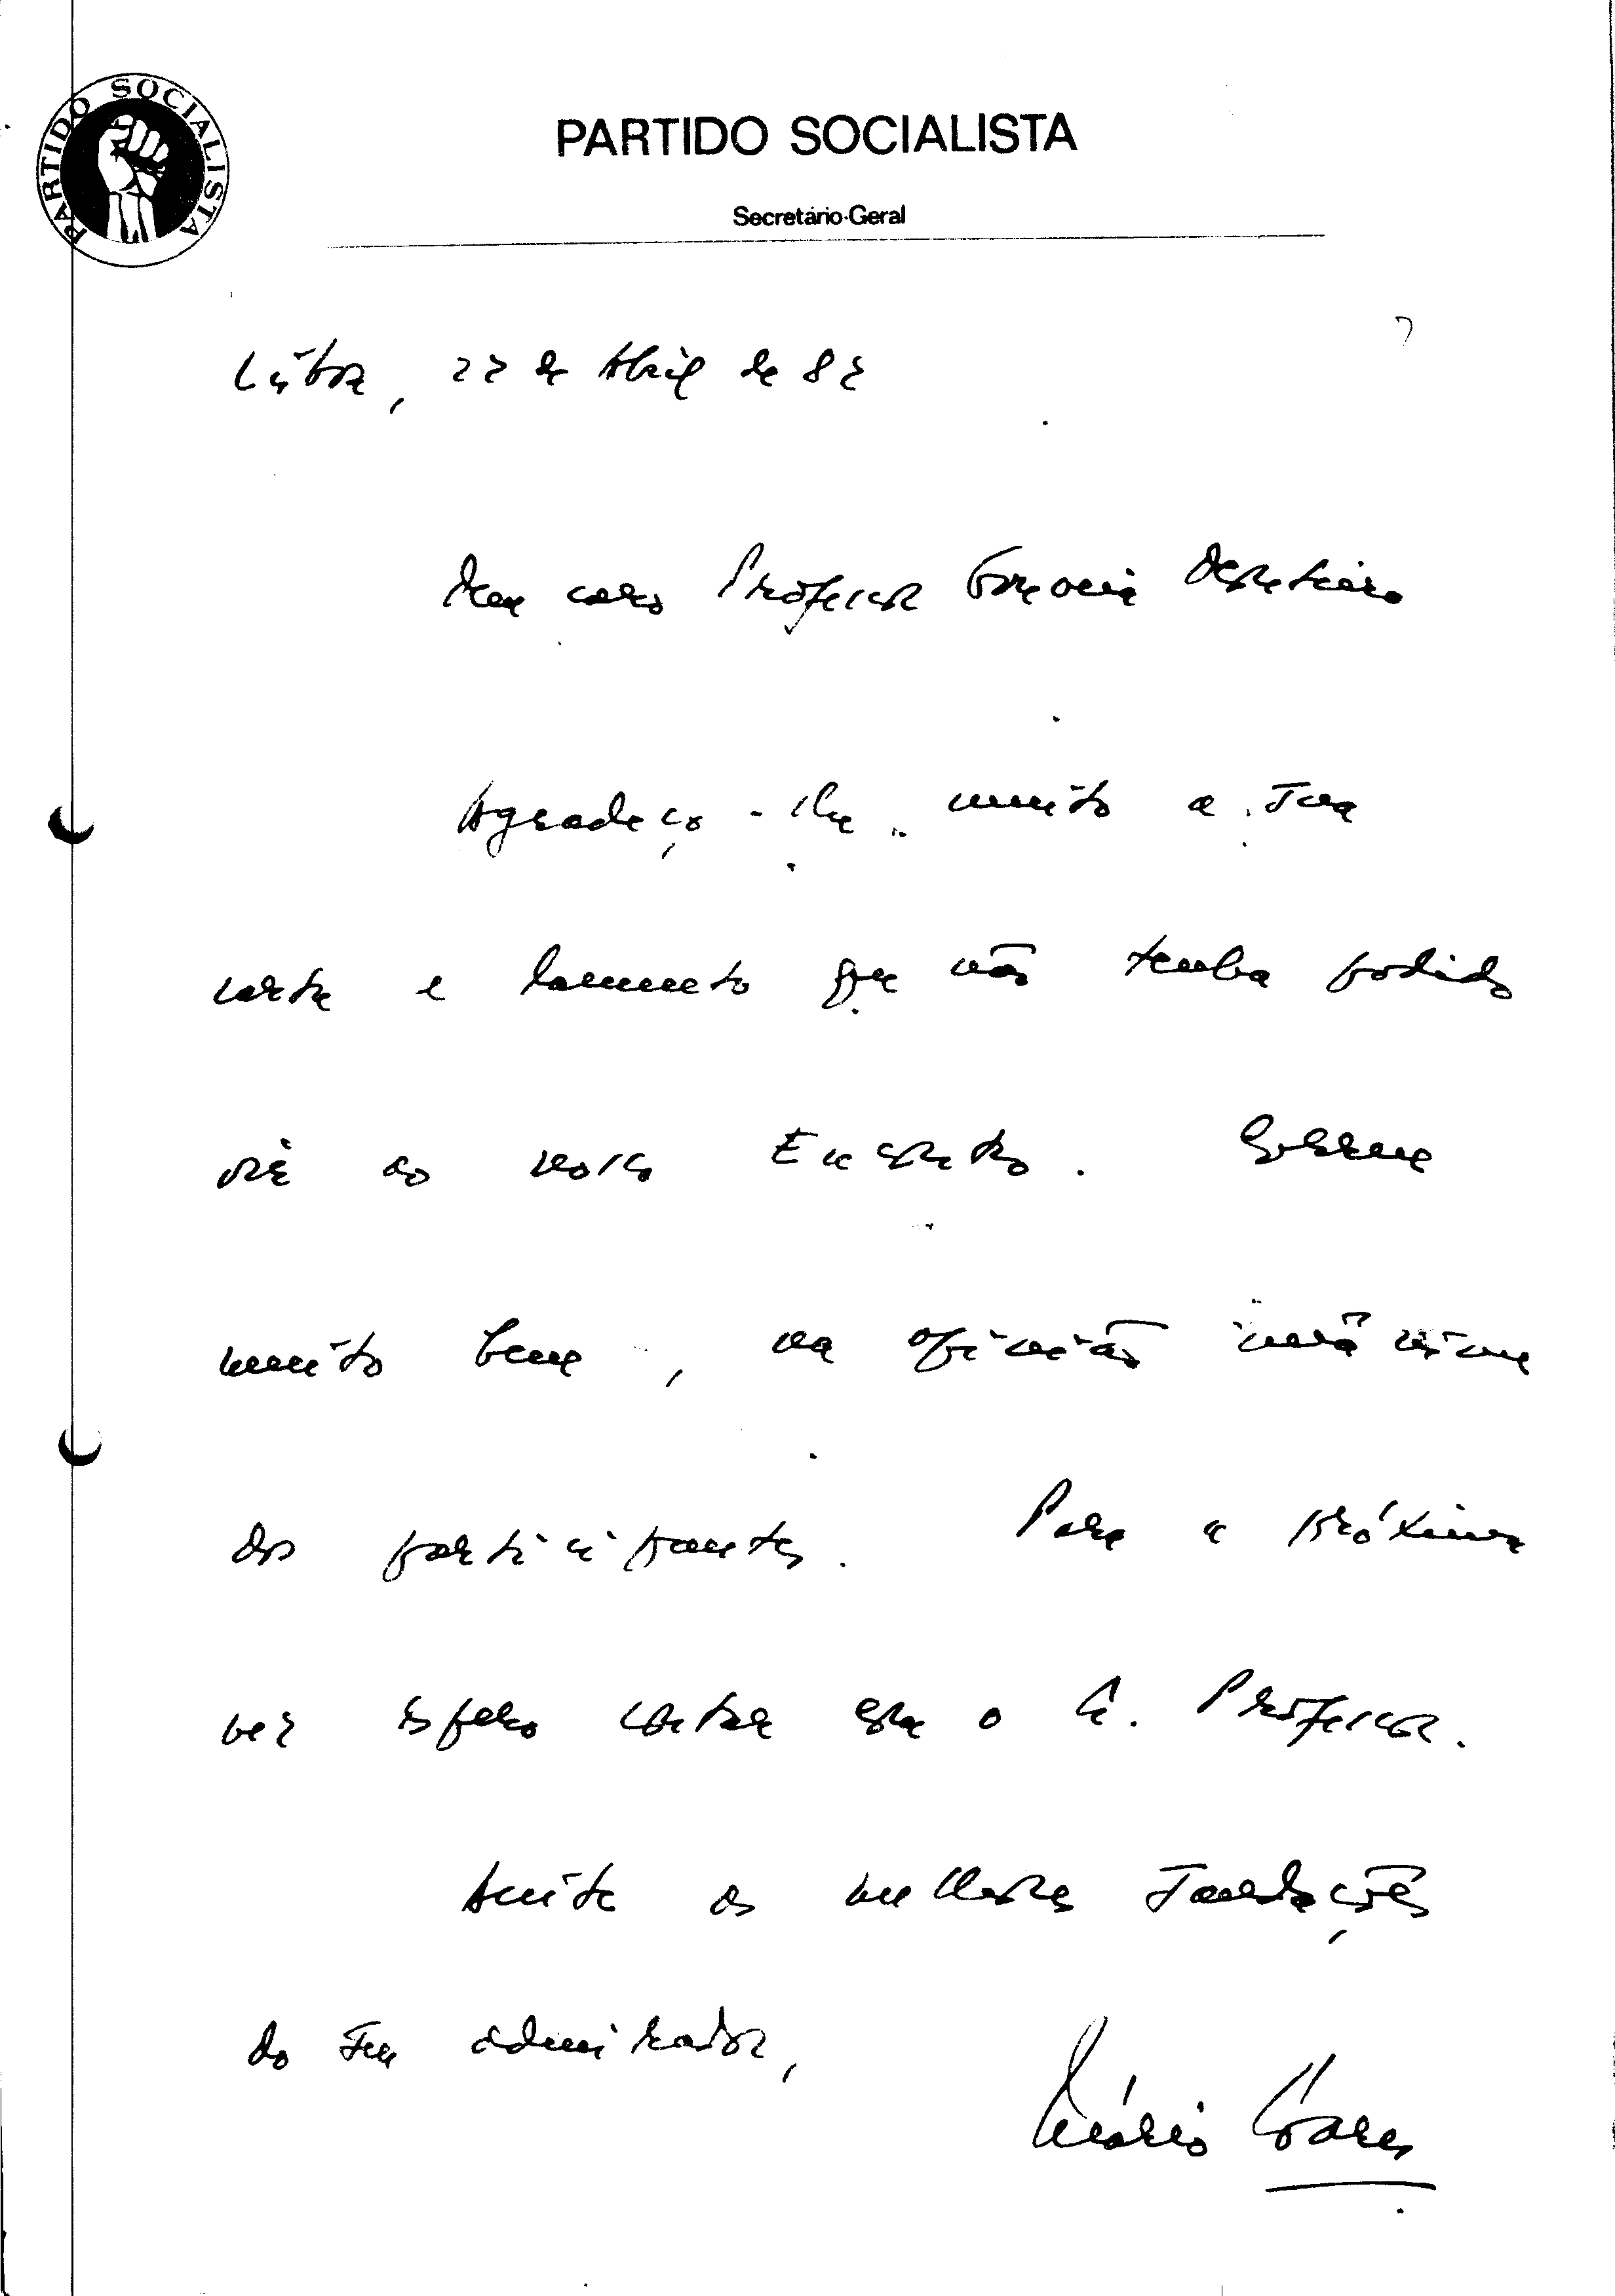 PARTIDO SOCIALISTA
PARTIDO SOCIALISTA
Secretário-Geral
Lisboa, 22 de Abril de 82
Meu caro Professor
Agradeço-lhe muito a sua
carta e lamento que não tenha podido
vir ao nosso Encontro. Correu
muito bem, na opinião unânime
dos participantes. Para a próxima
vez espero contar com o C. Professor.
Aceite as melhores saudações
do seu admirador,
Mário Soares